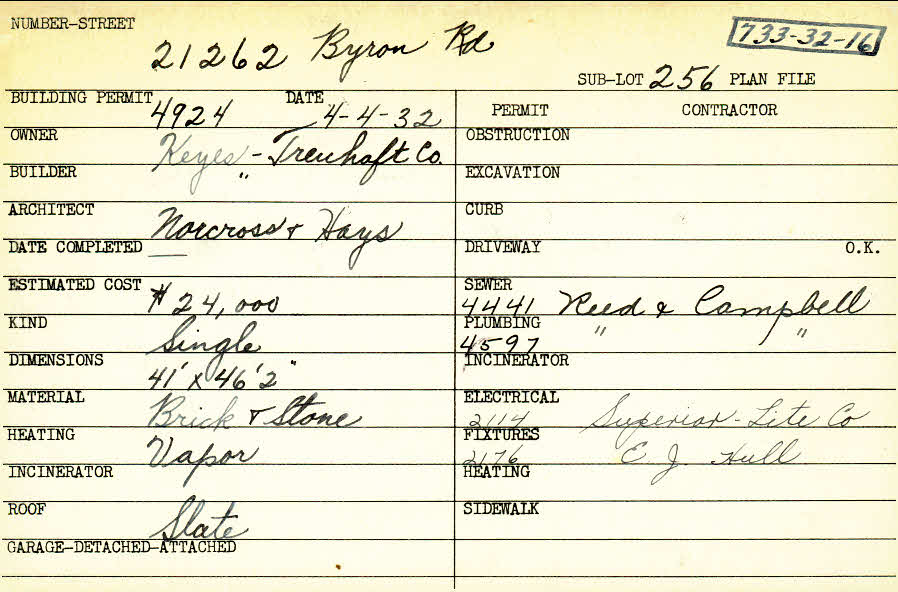 NUMBER-STREET
21262 Byron Rd
733-32-16
SUB-LOT 256 PLAN FILE
BUILDING PERMIT 4924 DATE 4-4-32
OWNER Keyes - Treuhaft Co.
BUILDER "
ARCHITECT Norcross & Hays
DATE COMPLETED —
ESTIMATED COST $24,000
KIND Single
DIMENSIONS 41' x 46'2"
MATERIAL Brick & Stone
HEATING Vapor
INCINERATOR
ROOF Slate
GARAGE-DETACHED-ATTACHED
PERMIT CONTRACTOR
OBSTRUCTION
EXCAVATION
CURB
DRIVEWAY O.K.
SEWER
4441 Reed & Campbell
PLUMBING
4597 " "
INCINERATOR
ELECTRICAL
2114 Superior-Lite Co
FIXTURES
2176 E. J. Hull
HEATING
SIDEWALK